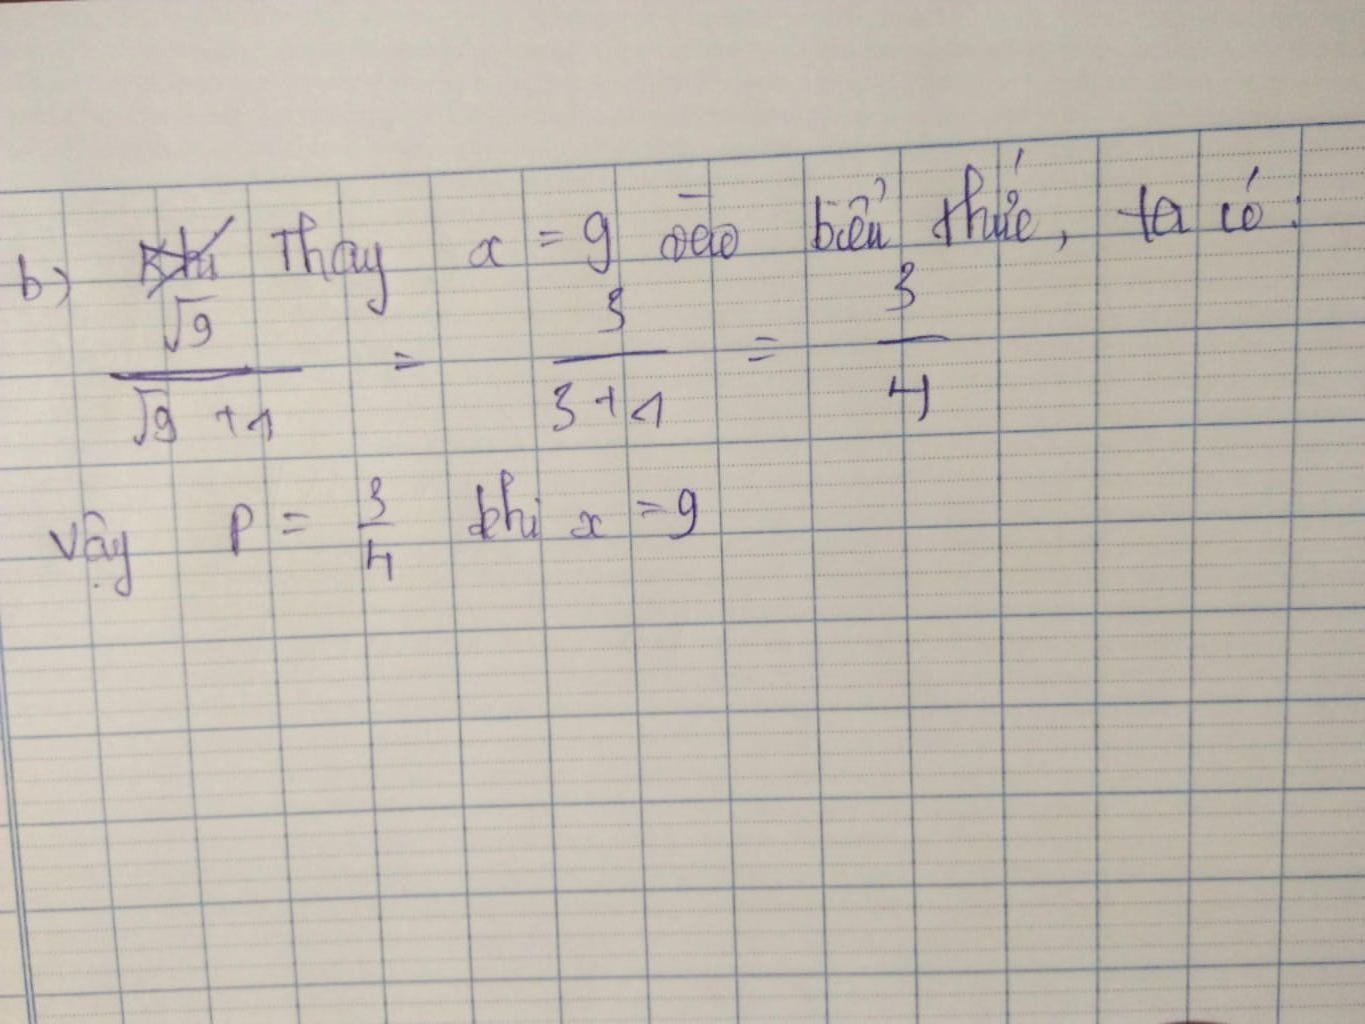 b) Khi Thay x = 9 vào biểu thức, ta có:
√9 / (√9 + 1) = 3 / (3 + 1) = 3 / 4
Vậy P = 3/4 khi x = 9